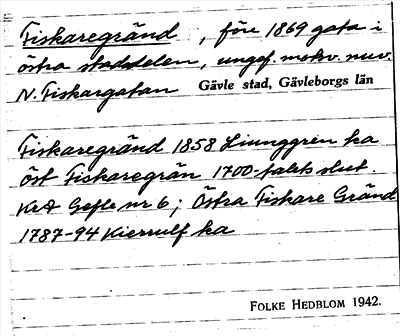 Fiskaregränd, före 1869 gata i
östra stadsdelen, ungef. motsv. nuv.
N. Fiskargatan Gävle stad, Gävleborgs län
Fiskaregränd 1858 Ljunggren ka
öst Fiskaregrän 1700-talets slut.
KrA Gefle nr 6; Östra Fiskare Gränd
1787-94 Kierrulf ka
FOLKE HEDBLOM 1942.